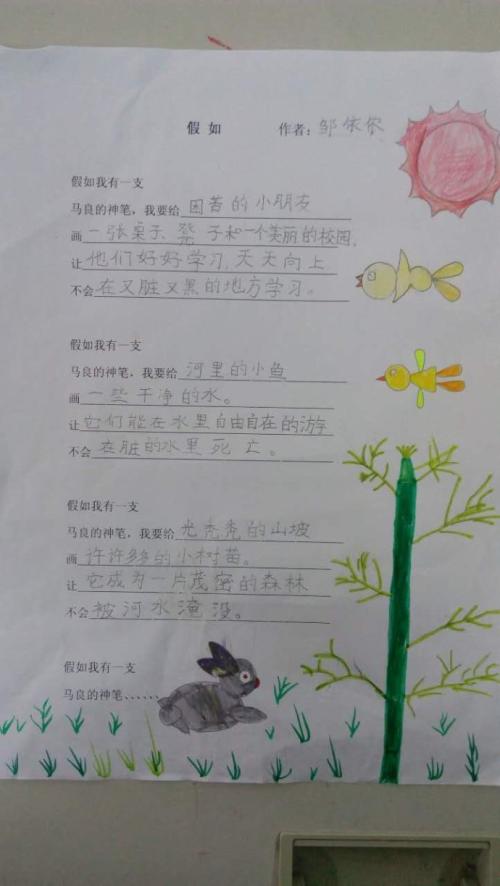 假如 作者：邹依依
假如我有一支
马良的神笔，我要给困苦的小朋友
画一张桌子、凳子和一个美丽的校园，
让他们好好学习，天天向上
不会在又脏又黑的地方学习。
假如我有一支
马良的神笔，我要给河里的小鱼
画一些干净的水。
让它们能在水里自由自在的游
不会在脏的水里死亡。
假如我有一支
马良的神笔，我要给光秃秃的山坡
画许许多多的小树苗。
让它成为一片茂密的森林
不会被河水淹没。
假如我有一支
马良的神笔、、、、、、